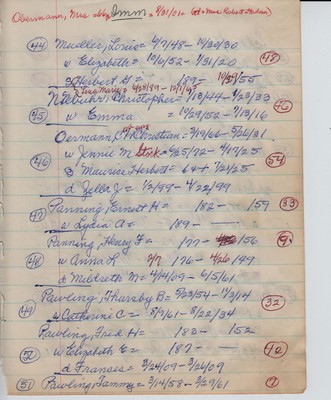 Oermann, Mrs Abby Imm = 9/31/01 = (of = Mrs Robert Nolan)
44 Mueller, Louis = 4/7/48 - 10/30/30 48
w Elizabeth = 10/6/52 - 1/31/20
S Herbert H = 189 - 10/59/55
Niebuhr, Christopher = 1/13/44 - 8/23/33 40
45 w Emma = 10/29/52 - 7/13/16
Oermann, Christian = 2/19/66 - 5/26/31
46 w Jennie M Stork = 6/25/72 - 4/17/25 54
S Maurice Herbert = 64 + 7/21/25
d Zella J = 1/2/99 - 4/22/99
47 Panning, Ernest H = 182 - 159 33
w Lydia A = 189 -
Panning, Henry F = 177 - 156 9
48 w Anna L 2/7 176 - 4/26 199
d Mildreth M = 4/14/09 - 6/5/61
49 Pawling, Thursby B = 5/23/54 - 11/3/14 32
w Catherine C = 8/9/61 - 8/22/34
Pawling, Fred H = 183 - 152
50 w Elizabeth E = 187 - 10
d Frances = 3/24/09 - 3/26/09
51 Pawling, Tammy = 3/14/58 - 3/29/61 9